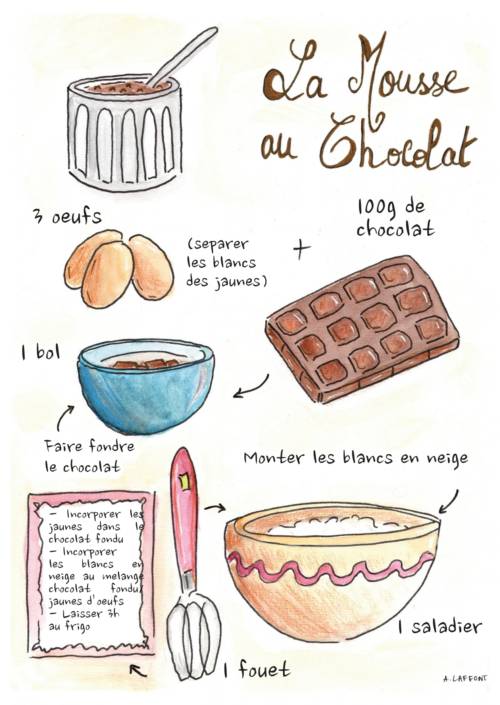 La Mousse
au Chocolat
3 oeufs
(separer
les blancs
des jaunes)
+
100g de
chocolat
1 bol
Faire fondre
le chocolat
Monter les blancs en neige
- Incorporer les
jaunes dans le
chocolat fondu
- Incorporer
les blancs en
neige au melange
chocolat fondu/
jaunes d'oeufs
- Laisser 3h
au frigo
1 saladier
1 fouet
A.LAFFONT